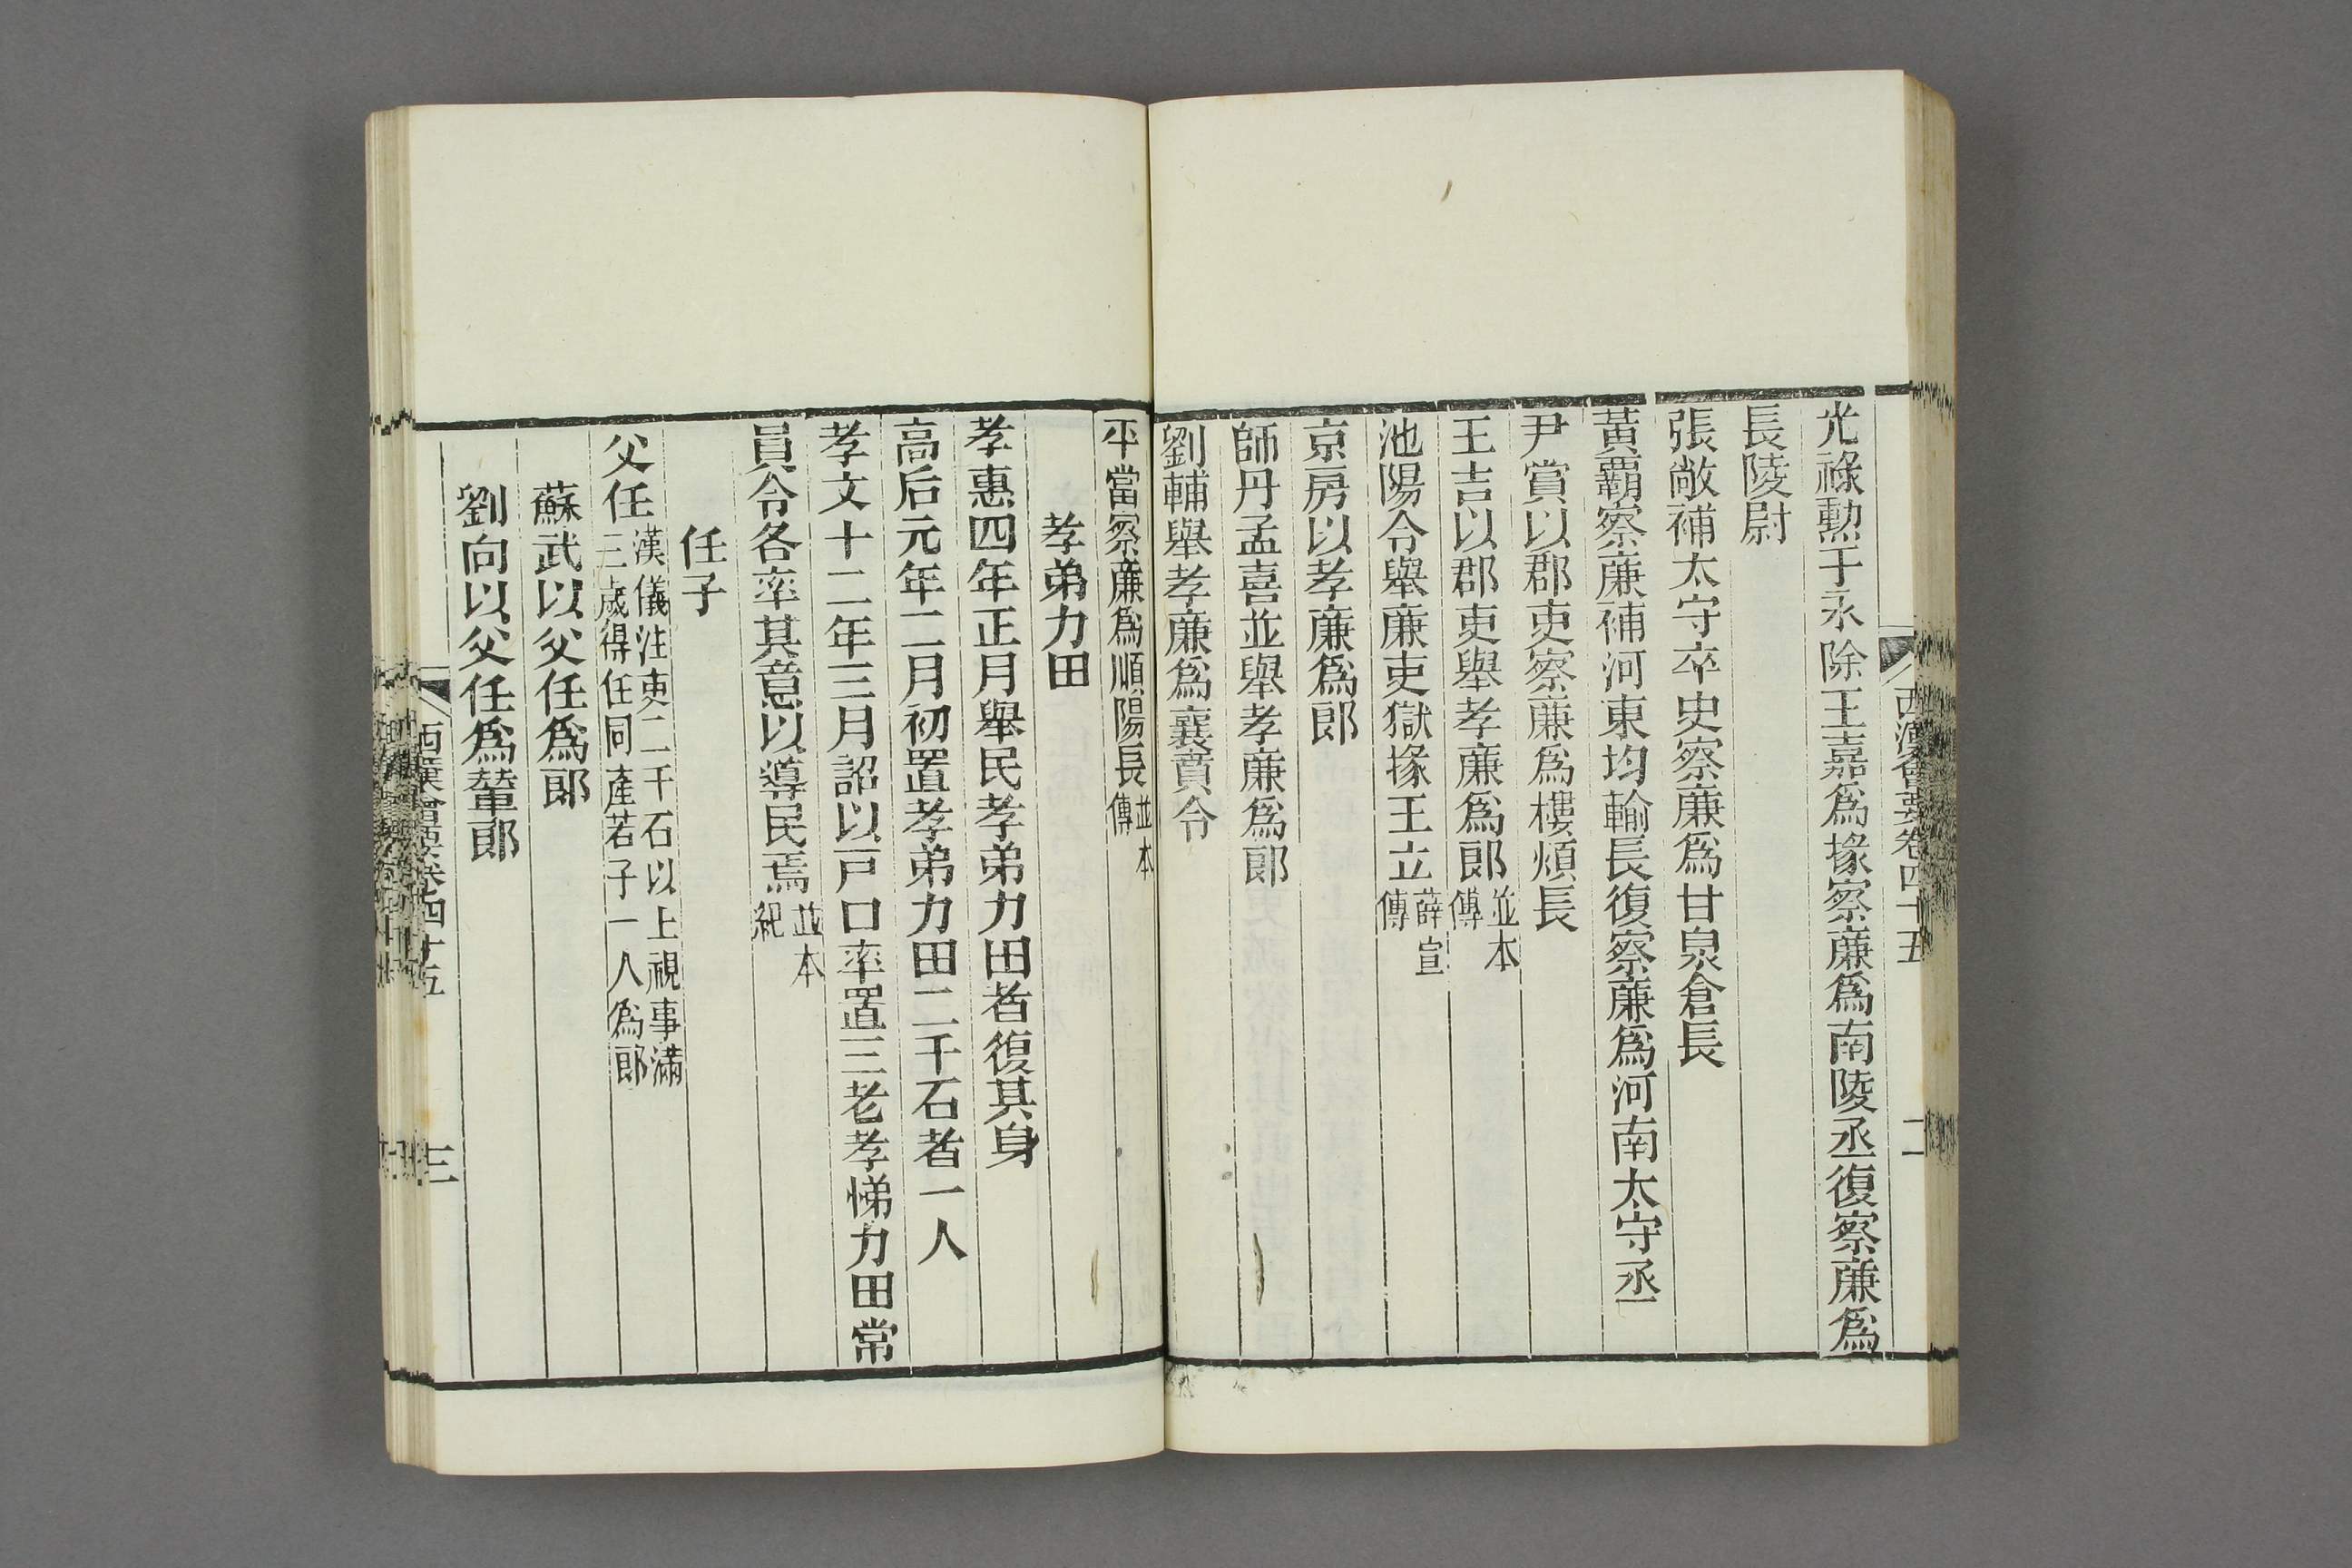 西漢會要卷四十五
二
光祿勲于永除王嘉爲掾察廉爲南陵丞復察廉爲
長陵尉
張敞補太守卒史察廉爲甘泉倉長
黃霸察廉補河東均輸長復察廉爲河南太守丞
尹賞以郡吏察廉爲樓煩長
王吉以郡吏舉孝廉爲郎並本傳
池陽令舉廉吏獄掾王立薛宣傳
京房以孝廉爲郎
師丹孟喜並舉孝廉爲郎
劉輔舉孝廉爲襄賁令
平當察廉爲順陽長並本傳
孝弟力田
孝惠四年正月舉民孝弟力田者復其身
高后元年二月初置孝弟力田二千石者一人
孝文十二年三月詔以戸口率置三老孝悌力田常
員令各率其意以導民焉並本紀
任子
父任漢儀注吏二千石以上視事滿三歲得任同產若子一人爲郎
蘇武以父任爲郎
劉向以父任爲輦郎
西漢會要卷四十五
三